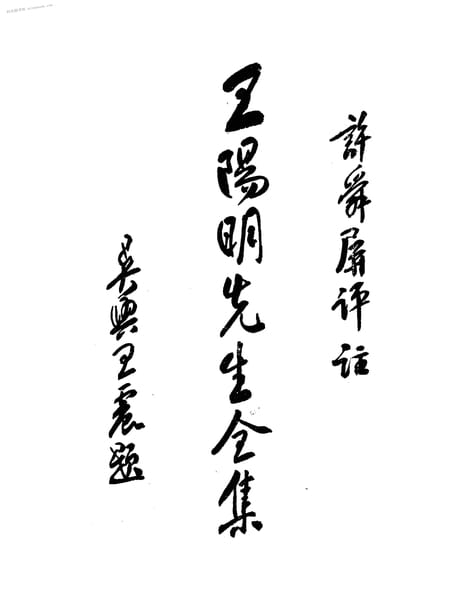 許舜屏评註
王陽明先生全集
吳興王震題